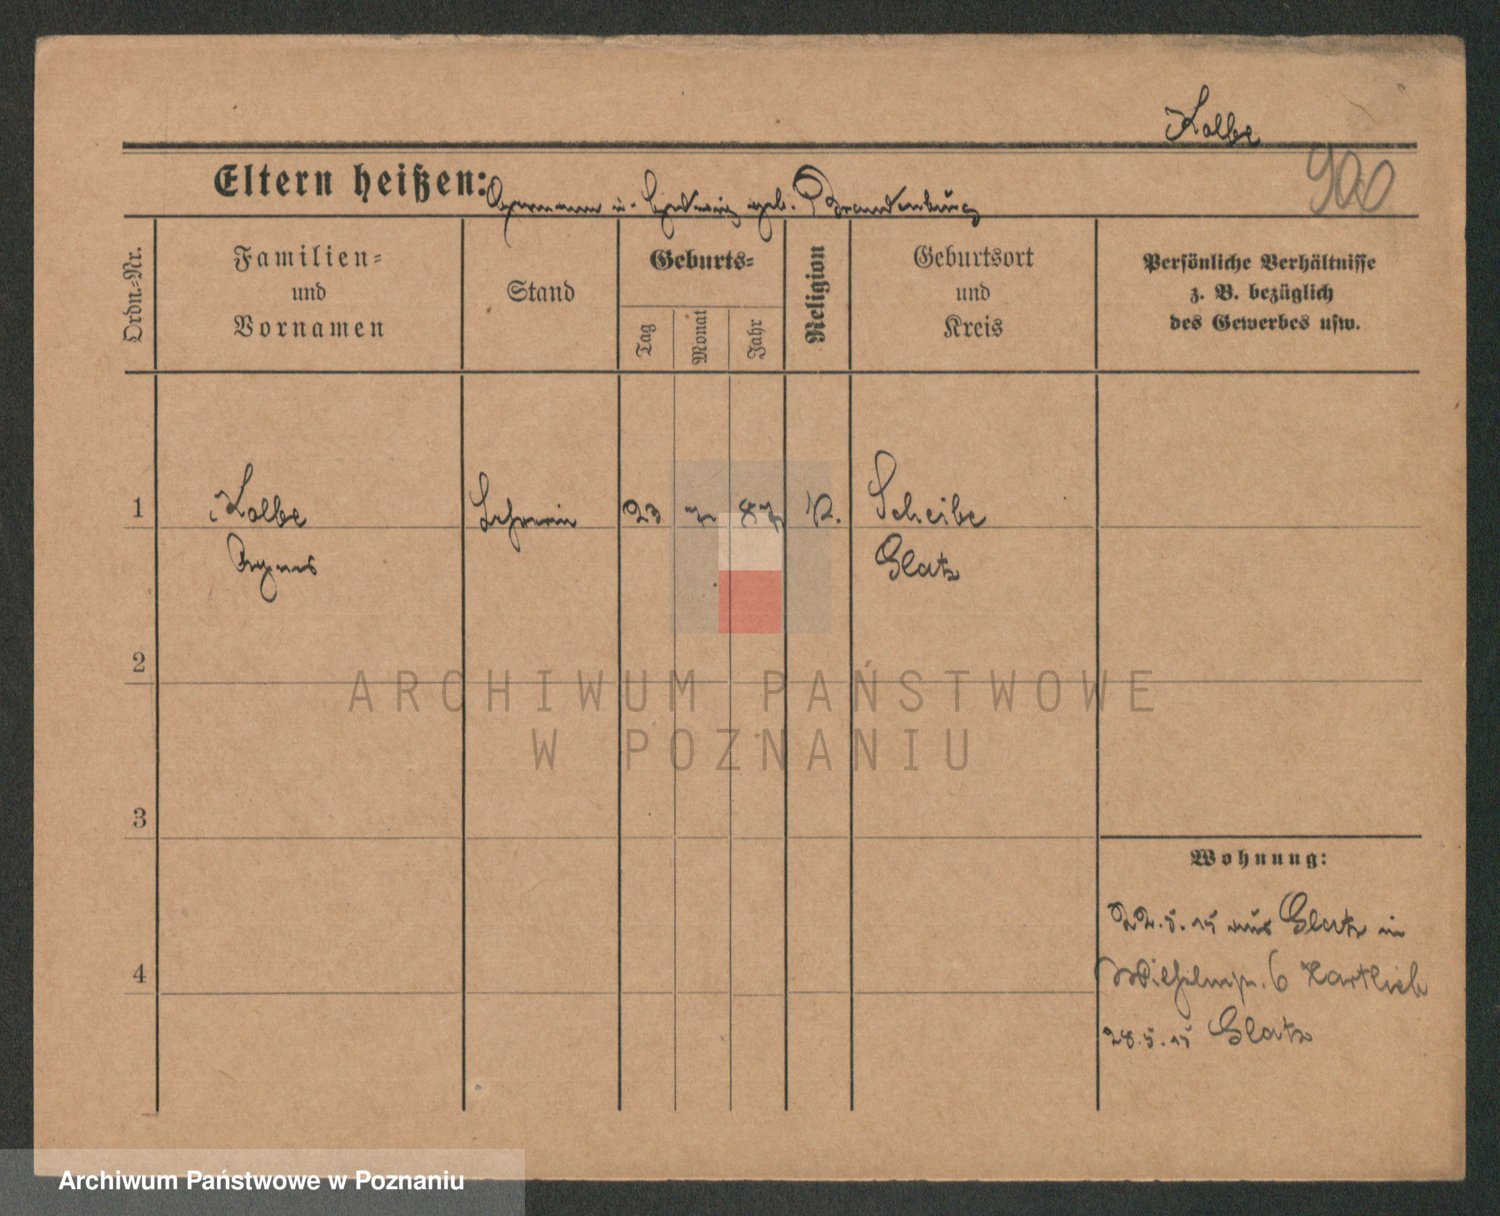 Kolbe
900
Eltern heißen: Hermann u. Hedwig geb. Brandenburg
Ordn.=Nr.
Familien=
und
Vornamen
Stand
Geburts=
Tag
Monat
Jahr
Religion
Geburtsort
und
Kreis
Persönliche Verhältnisse
z. B. bezüglich
des Gewerbes usw.
1
Kolbe
Agnes
Lehrerin
23
7
87
K.
Scheibe
Glatz
2
ARCHIWUM PAŃSTWOWE
W POZNANIU
3
4
Wohnung:
22.5.15 aus Glatz in
6 Hartlieb
28.5.15 Glatz
Archiwum Państwowe w Poznaniu